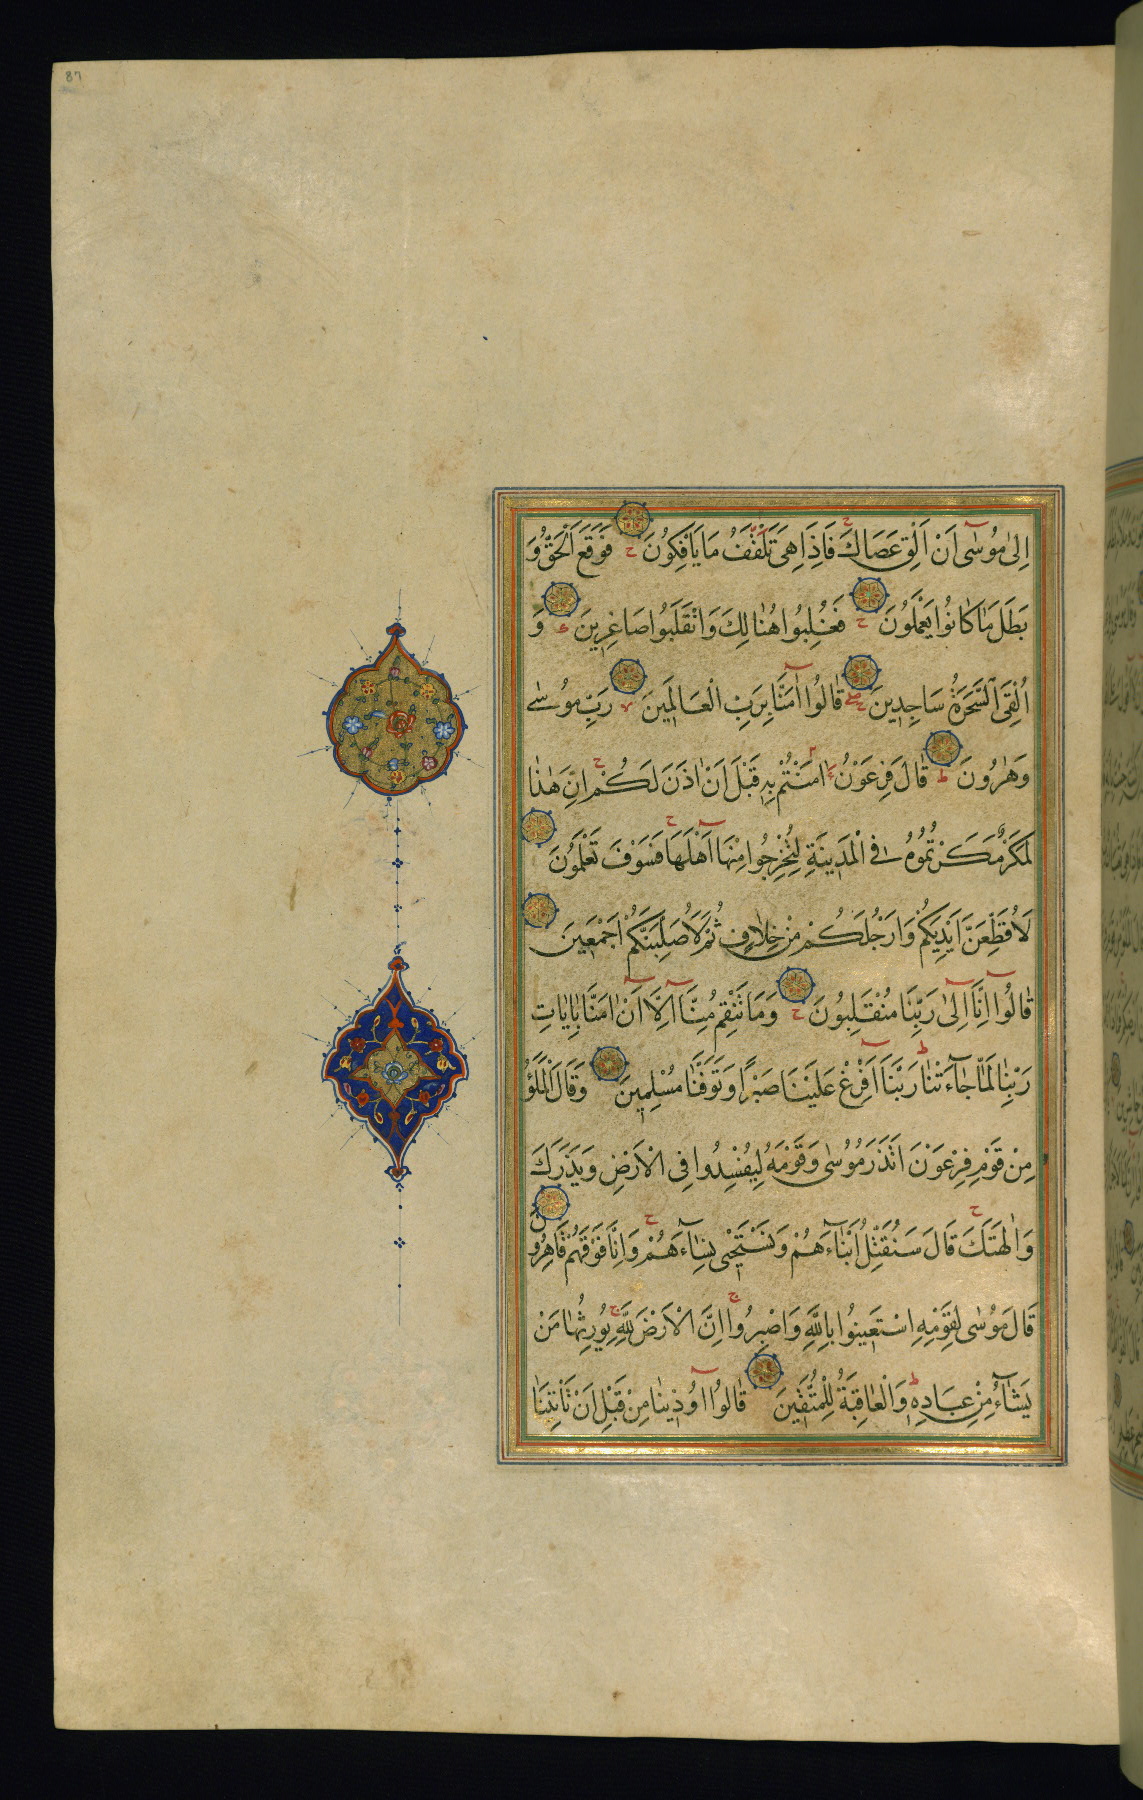 87
اِلىٰ مُوسٰٓى اَنْ اَلْقِ عَصَاكَ فَاِذَا هِيَ تَلْقَفُ مَا يَاْفِكُونَ فَوَقَعَ الْحَقُّ وَ
بَطَلَ مَا كَانُوا يَعْمَلُونَ فَغُلِبُوا هُنَالِكَ وَانْقَلَبُوا صَاغِرِينَ وَ
اُلْقِيَ السَّحَرَةُ سَاجِدِينَ قَالُوٓا اٰمَنَّا بِرَبِّ الْعَالَمِينَ رَبِّ مُوسٰى
وَهٰرُونَ قَالَ فِرْعَوْنُ اٰمَنْتُمْ بِهِ قَبْلَ اَنْ اٰذَنَ لَكُمْ اِنَّ هٰذَا
لَمَكْرٌ مَكَرْتُمُوهُ فِى الْمَدِينَةِ لِتُخْرِجُوا مِنْهَآ اَهْلَهَا فَسَوْفَ تَعْلَمُونَ
لَاُقَطِّعَنَّ اَيْدِيَكُمْ وَاَرْجُلَكُمْ مِنْ خِلَافٍ ثُمَّ لَاُصَلِّبَنَّكُمْ اَجْمَعِينَ
قَالُوٓا اِنَّآ اِلىٰ رَبِّنَا مُنْقَلِبُونَ وَمَا تَنْقِمُ مِنَّآ اِلَّآ اَنْ اٰمَنَّا بِاٰيَاتِ
رَبِّنَا لَمَّا جَآءَتْنَا رَبَّنَآ اَفْرِغْ عَلَيْنَا صَبْرًا وَتَوَفَّنَا مُسْلِمِينَ وَقَالَ الْمَلَؤُ
مِنْ قَوْمِ فِرْعَوْنَ اَتَذَرُ مُوسٰى وَقَوْمَهُ لِيُفْسِدُوا فِى الْاَرْضِ وَيَذَرَكَ
وَاٰلِهَتَكَ قَالَ سَنُقَتِّلُ اَبْنَآءَهُمْ وَنَسْتَحْيِى نِسَآءَهُمْ وَاِنَّا فَوْقَهُمْ قَاهِرُونَ
قَالَ مُوسٰى لِقَوْمِهِ اسْتَعِينُوا بِاللّٰهِ وَاصْبِرُوا اِنَّ الْاَرْضَ لِلّٰهِ يُورِثُهَا مَنْ
يَشَآءُ مِنْ عِبَادِهِ وَالْعَاقِبَةُ لِلْمُتَّقِينَ قَالُوٓا اُوذِينَا مِنْ قَبْلِ اَنْ تَاْتِيَنَا